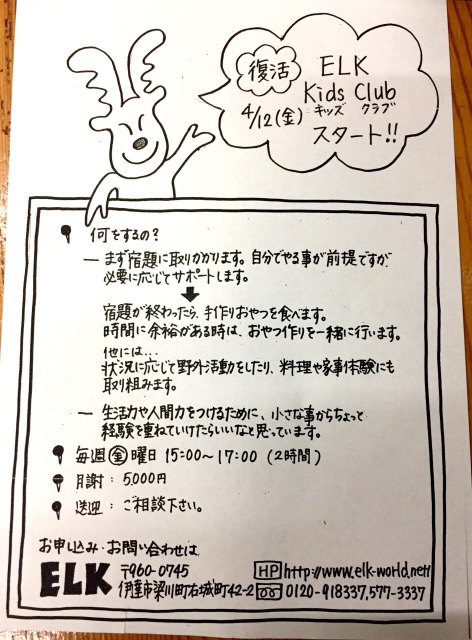 復活 ELK
Kids Club
キッズ クラブ
4/12(金)
スタート!!
何をするの?
― まず宿題に取りかかります。自分でやる事が前提ですが
必要に応じてサポートします。
宿題が終わったら、手作りおやつを食べます。
時間に余裕がある時は、おやつ作りを一緒に行います。
他には…
状況に応じて野外活動をしたり、料理や家事体験にも
取り組みます。
― 生活力や人間力をつけるために、小さな事からちょっと
経験を重ねていけたらいいなと思っています。
毎週金曜日 15:00~17:00 (2時間)
月謝: 5,000円
送迎: ご相談下さい。
お申し込み・お問い合わせは
ELK 〒960-0745 HP http://www.elk-world.net/
伊達市梁川町右城町42-2 0120-918337, 577-3337